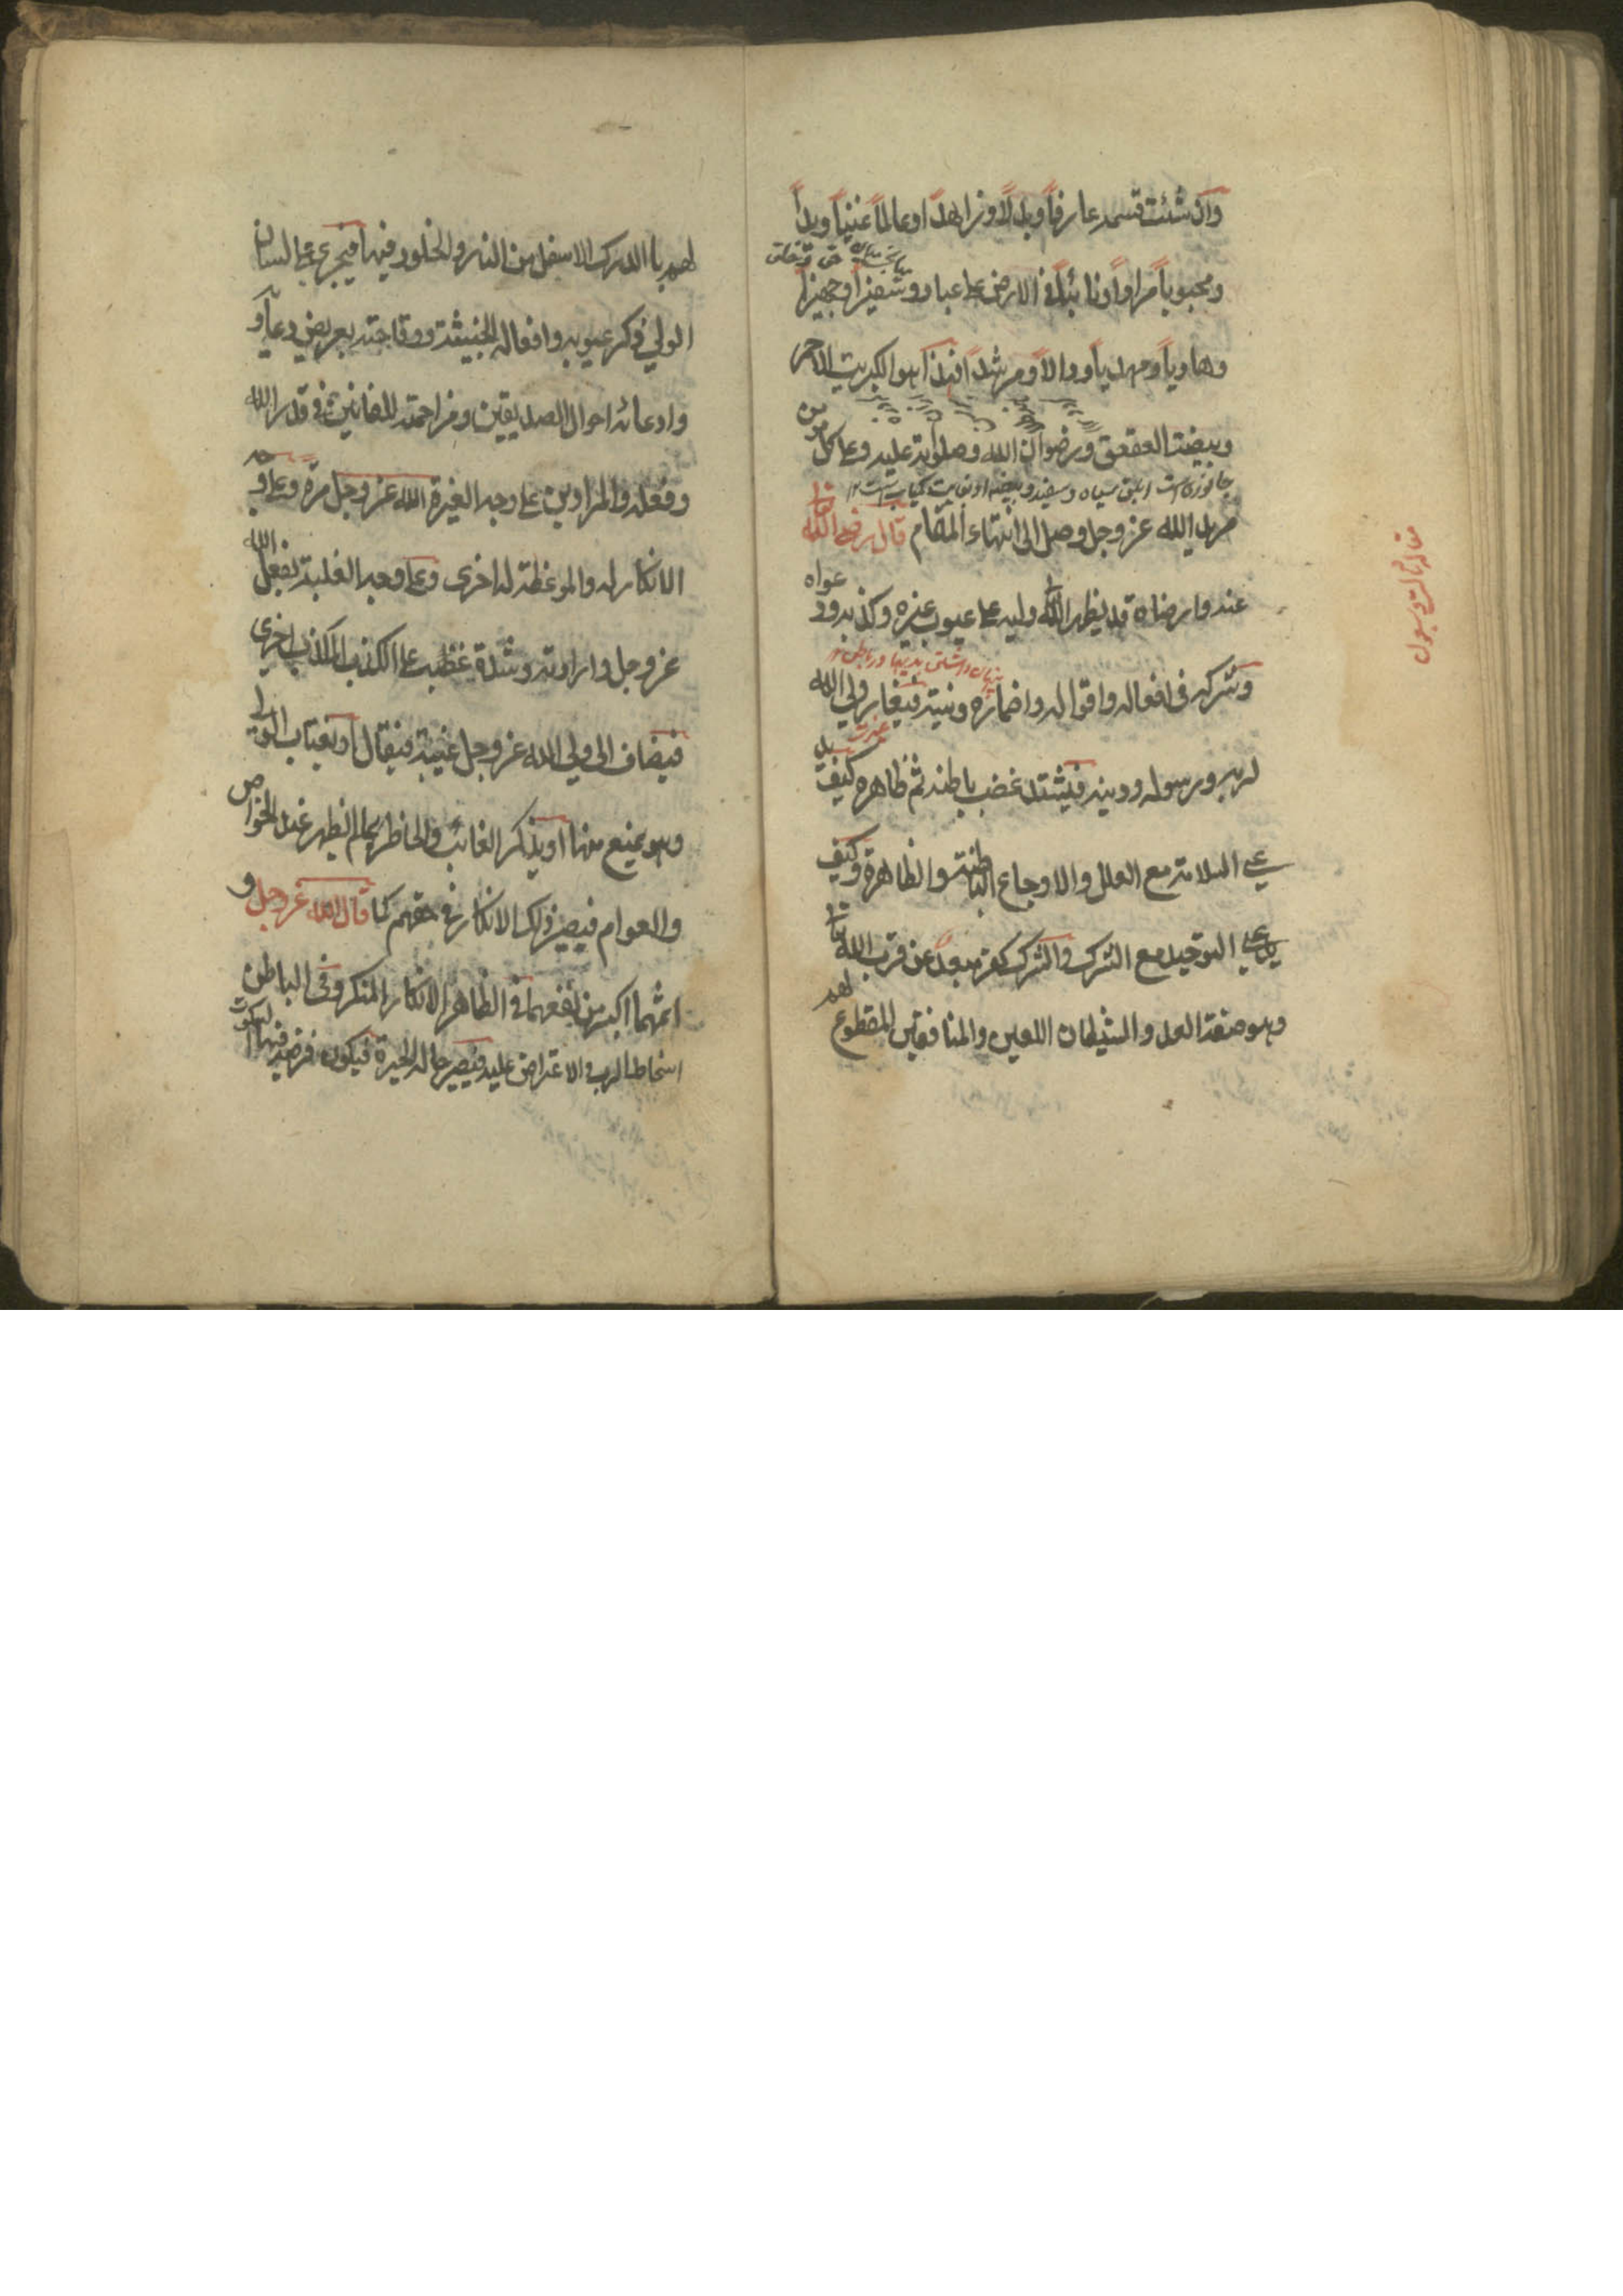 وان شئت قسمه عارفاً وبدلاً وزاهداً وعالماً غنياً وبدلاً
ومحبوباً مراداً ونائباً في الارض على عباده وسفيراً وجهبذاً
وهادياً ومهدياً ودالاً ومرشداً فهذا هو الكبريت الاحمر
وبيضة العقعق ورضوان الله وصلوته عليه وعلى كل مؤمن
جانوری است ابلق سیاه و سفید و بیضه او نهایت کمیاب است ۱۲
مريد الله عزوجل وصل الى انتهاء المقام قال رضي الله تعالى
عنه وارضاه قد يظهر الله وليه على عيوب غيره وكذبه ودعواه
وشركه في افعاله واقواله واضماره ونيته فيغار ولي الله
غيرت
لربه ورسوله ودينه فيشتد غضب باطنه ثم ظاهره كيف
يدعي السلامة مع العلل والاوجاع الباطنة والظاهرة وكيف
يدعي التوحيد مع الشرك والشرك كفر مبعد عن قرب الله تعالى
وهو صفة العدو الشيطان اللعين والمنافقين المقطوع لهم
لهم بالدرك الاسفل من النار والخلود فيها فيجري على لسان
الولي ذكر عيوبه وافعاله الخبيثة ووقاحته بعريض دعاو
وادعائه احوال الصديقين ومزاحمته للفانين في قدر الله
وفعله والمرادين على وجه الغيرة لله عزوجل مرة وعلى وجه
الانكار له والموعظة له اخرى وعلى وجه الغلبة لفعل الله
عزوجل وارادته وشدة غضبه على الكذب المكذب اخرى
فيضاف الى ولي الله عزوجل غيبة فيقال اويغتاب الولي
وهو يمنع منها او يذكر الغائب والحاظر بما لم يظهر عند الخواص
والعوام فيصير ذلك الانكار في حقهم كما قال الله عزوجل و
اثمهما اكبر من نفعهما في الظاهر الانكار المنكر وفي الباطن
اسخاط الرب والاعتراض عليه فيصير حاله الحيرة فيكون فرضه فيها السكوت